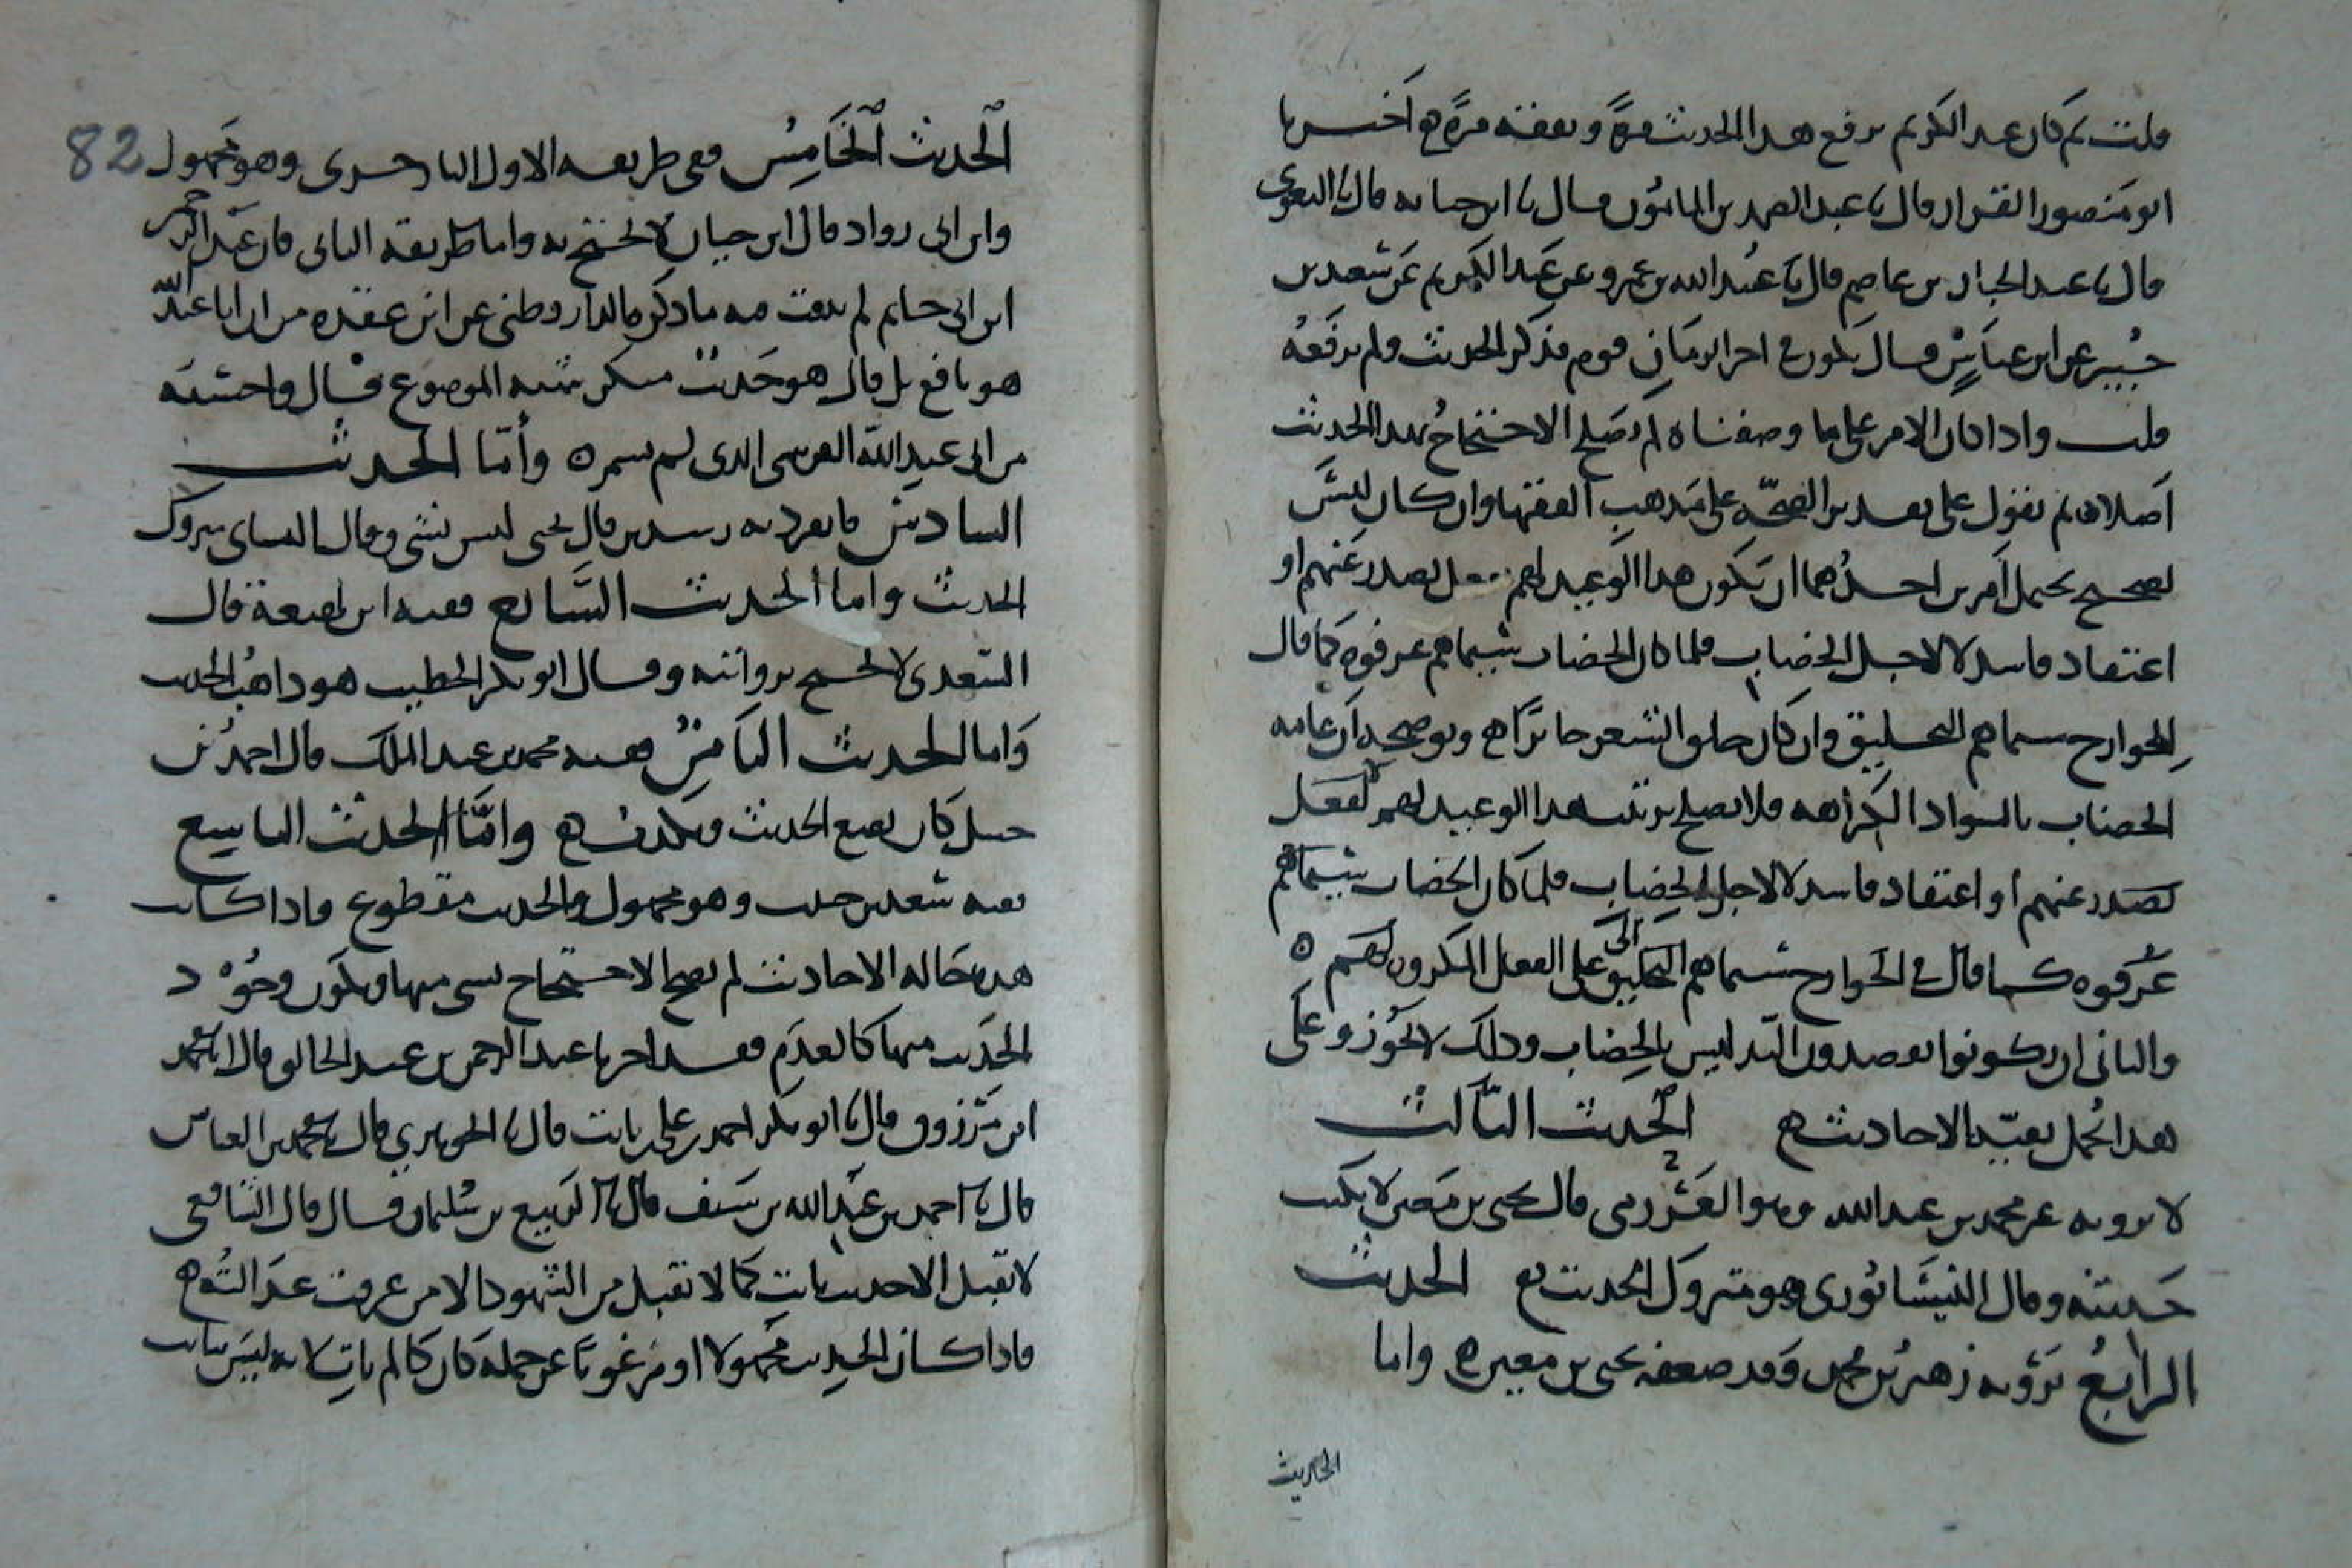 قلت ثم كان عبد الكريم يرفع هذا الحديث مرة ويقفه مرة ه أخبرنا
ابو منصور القزاز قال نا عبد الصمد بن المأمون قال نا ابن حبابة قال نا البغوي
قال نا عبد الجبار بن عاصم قال نا عبيد الله بن عمرو عن عبد الكريم عن سعيد بن
جبير عن ابن عباس قال يكون في اخر الزمان قوم فذكر الحديث ولم يرفعه
قلت واذا كان الامر على ما وصفناه لم يصلح الاحتجاج بهذا الحديث
اصلا ه ثم نقول على تقدير الصحة على مذهب الفقها وان كان ليس
بصحيح يحتمل أمرين احدهما ان يكون هذا الوعيد لهم لفعل يصدر عنهم او
اعتقاد فاسد لا لاجل الخضاب فلما كان الخضاب سيماهم عرفوه كما قال
في الخوارج سيماهم التحليق وان كان حلق الشعر جائزا ه ويوضحه ان غاية
الخضاب بالسواد الكراهه فلا يصلح يرتب هذا الوعيد لهم لفعل
يصدر عنهم او اعتقاد فاسد لا لاجل الخضاب فلما كان الخضاب سيماهم
عرفوه كما قال في الخوارج سيماهم التحليق اي على الفعل المكروه لهم ه
والثاني ان يكونوا يقصدون التدليس بالخضاب وذلك لا يجوز وعلى
هذا تحمل بقية الاحاديث ه الحديث الثالث
لا يرويه عن محمد بن عبد الله وهو العرزمي قال يحيى بن معين لا يكتب
حديثه وقال النيسابوري وهو متروك الحديث ه الحديث
الرابع يرويه زهير بن محمد وقد ضعفه يحيى بن معين ه واما
الحديث
82
الحديث الخامس ففي طريقه الاول وهو مجهول
وابن ابي رواد قال ابن حبان لا يحتج به واما طريقه الثاني فان عبد الرحمن
ابن ابي حاتم لم يلتفت فيه ما ذكره الدارقطني عن ابن عقده من ان ابا عبد الله
هو نافع بل قال هو حديث منكر شبه الموضوع قال واحسبه
من ابي عبد الله القرشي الذي لم يسم ه وأما الحديث
السادس فانفرد به رشدين قال يحيى ليس بشي وقال النساي متروك
الحديث واما الحديث السابع ففيه ابن لهيعة قال
السعدي لا يحتج بروايته وقال ابو بكر الخطيب هو ذاهب الحديث
واما الحديث الثامن ففيه محمد بن عبد الملك قال احمد بن
حنبل كان يضع الحديث ويكذب ه وأما الحديث التاسع
ففيه سعد بن وهو مجهول والحديث مقطوع فاذا كانت
هذه حالة الاحاديث لم يصح الاحتجاج بشي منها فيكون وجود
الحديث منها كالعدم فقد اخبرنا عبد الرحمن بن عبد الخالق قال انا محمد
ابن مرزوق قال نا ابو بكر احمد بن علي بن ثابت قال نا الجوهري قال نا محمد بن العباس
قال نا احمد بن عبد الله بن سيف قال نا الربيع بن سليمان قال قال الشافعي
لا نقبل الا حديث ثابت كما لا نقبل من الشهود الا من عرفت عدالته ه
فاذا كان الحديث مجهولا او مرغوبا عن حمله كان كما لم يات لانه ليس بثابت